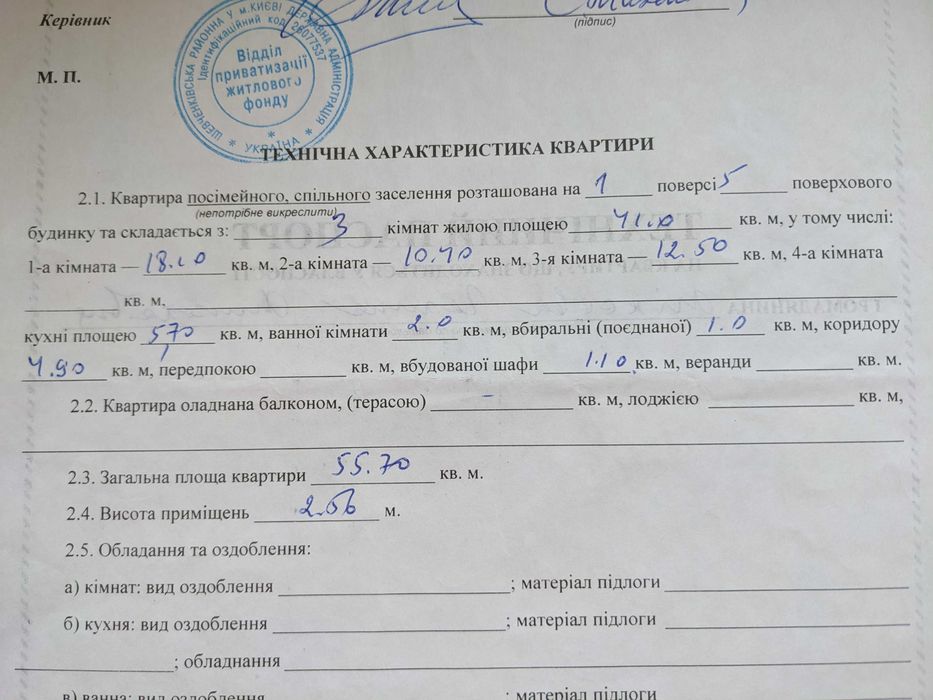 Керівник
(підпис)
М. П.
ШЕВЧЕНКІВСЬКА РАЙОННА У М.КИЄВІ ДЕРЖАВНА АДМІНІСТРАЦІЯ * УКРАЇНА *
Ідентифікаційний код 26077537
Відділ
приватизації
житлового
фонду
*
ТЕХНІЧНА ХАРАКТЕРИСТИКА КВАРТИРИ
2.1. Квартира посімейного, спільного заселення розташована на 1 поверсі 5 поверхового
(непотрібне викреслити)
будинку та складається з: 3 кімнат жилою площею 41.0 кв. м, у тому числі:
1-а кімната — 18.10 кв. м, 2-а кімната — 10.40 кв. м, 3-я кімната — 12.50 кв. м, 4-а кімната
кв. м,
кухні площею 5,70 кв. м, ванної кімнати 2.0 кв. м, вбиральні (поєднаної) 1.0 кв. м, коридору
4.90 кв. м, передпокою кв. м, вбудованої шафи 1.10 кв. м, веранди кв. м.
2.2. Квартира оладнана балконом, (терасою) - кв. м, лоджією кв. м,
2.3. Загальна площа квартири 55.70 кв. м.
2.4. Висота приміщень 2.56 м.
2.5. Обладання та оздоблення:
а) кімнат: вид оздоблення ; матеріал підлоги
б) кухня: вид оздоблення ; матеріал підлоги
; обладнання
в) ванна: вид оздоблення ; матеріал підлоги